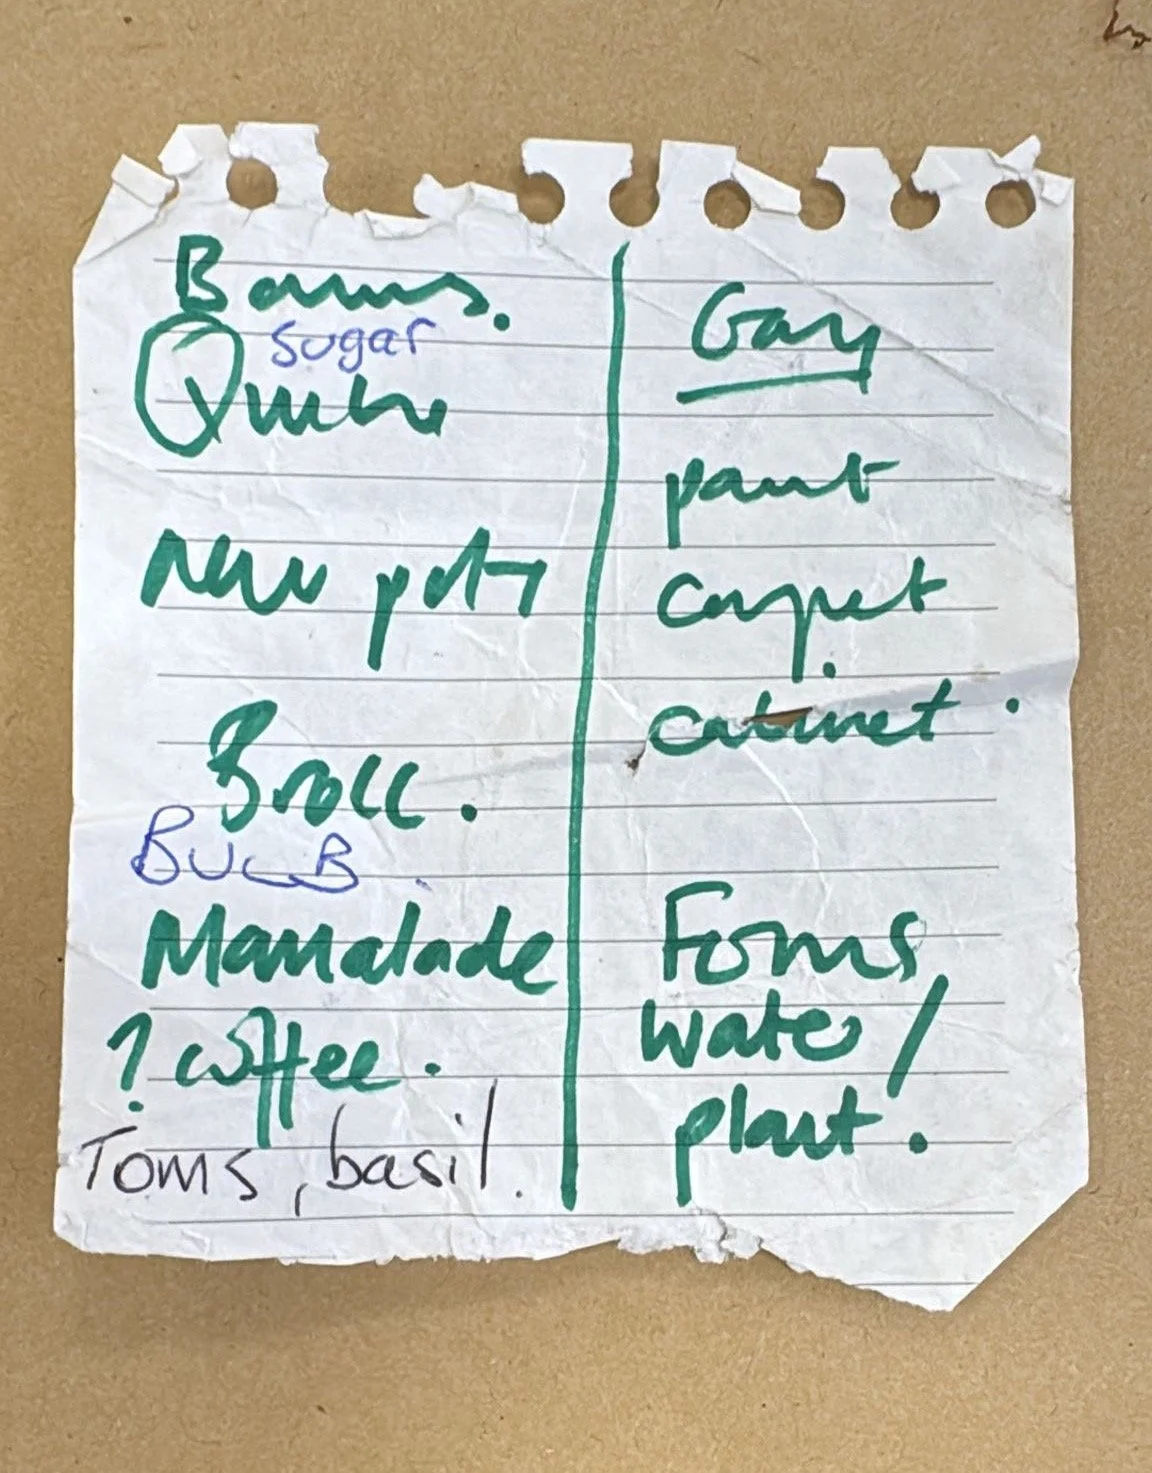 sugar
New pots
Brocc.
BULB
Marmalade
? coffee.
Toms, basil.
Gary
paint
carpet
cabinet.
Foms,
water/
plant.